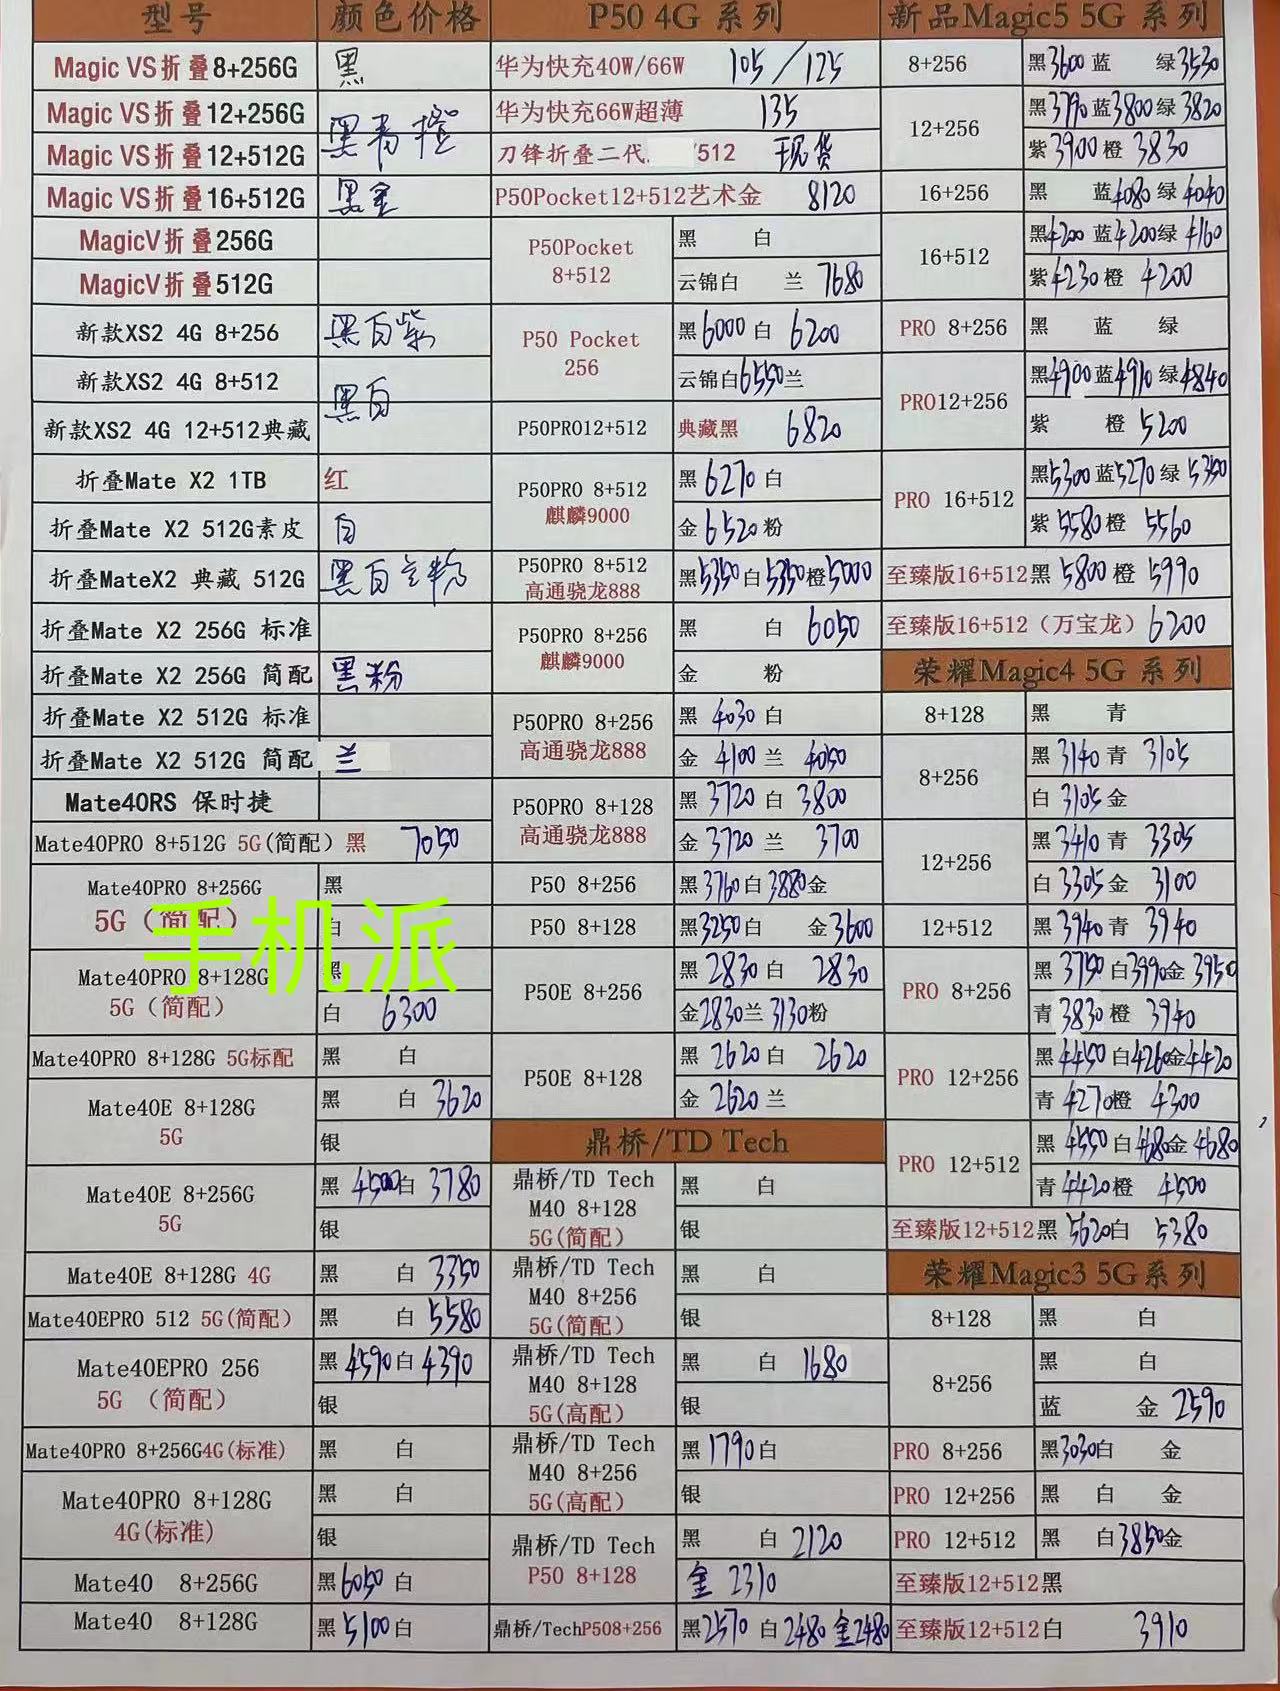 型号 颜色价格
Magic VS折叠8+256G 黑
Magic VS折叠12+256G 黑青橙
Magic VS折叠12+512G
Magic VS折叠16+512G 黑金
MagicV折叠256G
MagicV折叠512G
新款XS2 4G 8+256 黑白紫
新款XS2 4G 8+512 黑白
新款XS2 4G 12+512典藏
折叠Mate X2 1TB 红
折叠Mate X2 512G素皮 白
折叠MateX2 典藏 512G 黑白 粉
折叠Mate X2 256G 标准
折叠Mate X2 256G 简配 黑粉
折叠Mate X2 512G 标准
折叠Mate X2 512G 简配 兰
Mate40RS 保时捷
Mate40PRO 8+512G 5G(简配) 黑 7050
Mate40PRO 8+256G 黑
5G(简配) 白
手机派
Mate40PRO 8+128G 黑
5G(简配) 白 6300
Mate40PRO 8+128G 5G标配 黑 白
Mate40E 8+128G 黑 白 3620
5G 银
Mate40E 8+256G 黑 4500白 3780
5G 银
Mate40E 8+128G 4G 黑 白 3350
Mate40EPRO 512 5G(简配) 黑 白 5580
Mate40EPRO 256 黑 4590白 4390
5G (简配) 银
Mate40PRO 8+256G4G(标准) 黑 白
Mate40PRO 8+128G 黑 白
4G(标准) 银
Mate40 8+256G 黑6050 白
Mate40 8+128G 黑 5100白
P50 4G 系列
华为快充40W/66W 105/125
华为快充66W超薄 135
刀锋折叠二代 /512 现货
P50Pocket12+512艺术金 8120
P50Pocket 黑 白
8+512 云锦白 兰 7680
P50 Pocket 黑6000白 6200
256 云锦白6550兰
P50PRO12+512 典藏黑 6820
P50PRO 8+512 黑 6270白
麒麟9000 金 6520粉
P50PRO 8+512 黑5350白5350橙5000
高通骁龙888
P50PRO 8+256 黑 白 6050
麒麟9000 金 粉
P50PRO 8+256 黑 4030白
高通骁龙888 金 4100 兰 4050
P50PRO 8+128 黑 3720 白 3800
高通骁龙888 金 3720 兰 3700
P50 8+256 黑3760白3880金
P50 8+128 黑3250白 金3600
P50E 8+256 黑 2830白 2830
金2830兰 3130粉
P50E 8+128 黑 2620白 2620
金 2620兰
鼎桥/TD Tech
鼎桥/TD Tech 黑 白
M40 8+128
5G(简配) 银
鼎桥/TD Tech 黑 白
M40 8+256
5G(简配) 银
鼎桥/TD Tech 黑 白 1680
M40 8+128
5G(高配) 银
鼎桥/TD Tech 黑1790白
M40 8+256
5G(高配) 银
鼎桥/TD Tech 黑 白2120
P50 8+128 金 2310
鼎桥/TechP508+256 黑2570 白2480 金2480
新品Magic5 5G 系列
8+256 黑3600 蓝 绿3530
12+256 黑3790蓝3800绿 3820
紫3900橙 3830
16+256 黑 蓝4080绿 4040
16+512 黑4200 蓝4200绿 4160
紫4230橙 4200
PRO 8+256 黑 蓝 绿
PRO12+256 黑4900蓝4910绿4840
紫 橙 5200
PRO 16+512 黑5300蓝5270绿 5350
紫 5580橙 5560
至臻版16+512黑 5800橙 5990
至臻版16+512(万宝龙)6200
荣耀Magic4 5G 系列
8+128 黑 青
8+256 黑 3140 青 3105
白 3105金
12+256 黑 3410青 3305
白 3305金 3100
12+512 黑 3940青 3940
PRO 8+256 黑 3750白3990金 3950
青 3830橙 3940
PRO 12+256 黑 4450白4260金4420
青 4270橙 4300
PRO 12+512 黑 4550白4680金 4680
青 4420橙 4500
至臻版12+512黑 5620白 5380
荣耀Magic3 5G系列
8+128 黑 白
8+256 黑 白
蓝 金 2590
PRO 8+256 黑3030白 金
PRO 12+256 黑 白 金
PRO 12+512 黑 白3850金
至臻版12+512黑
至臻版12+512白 3910